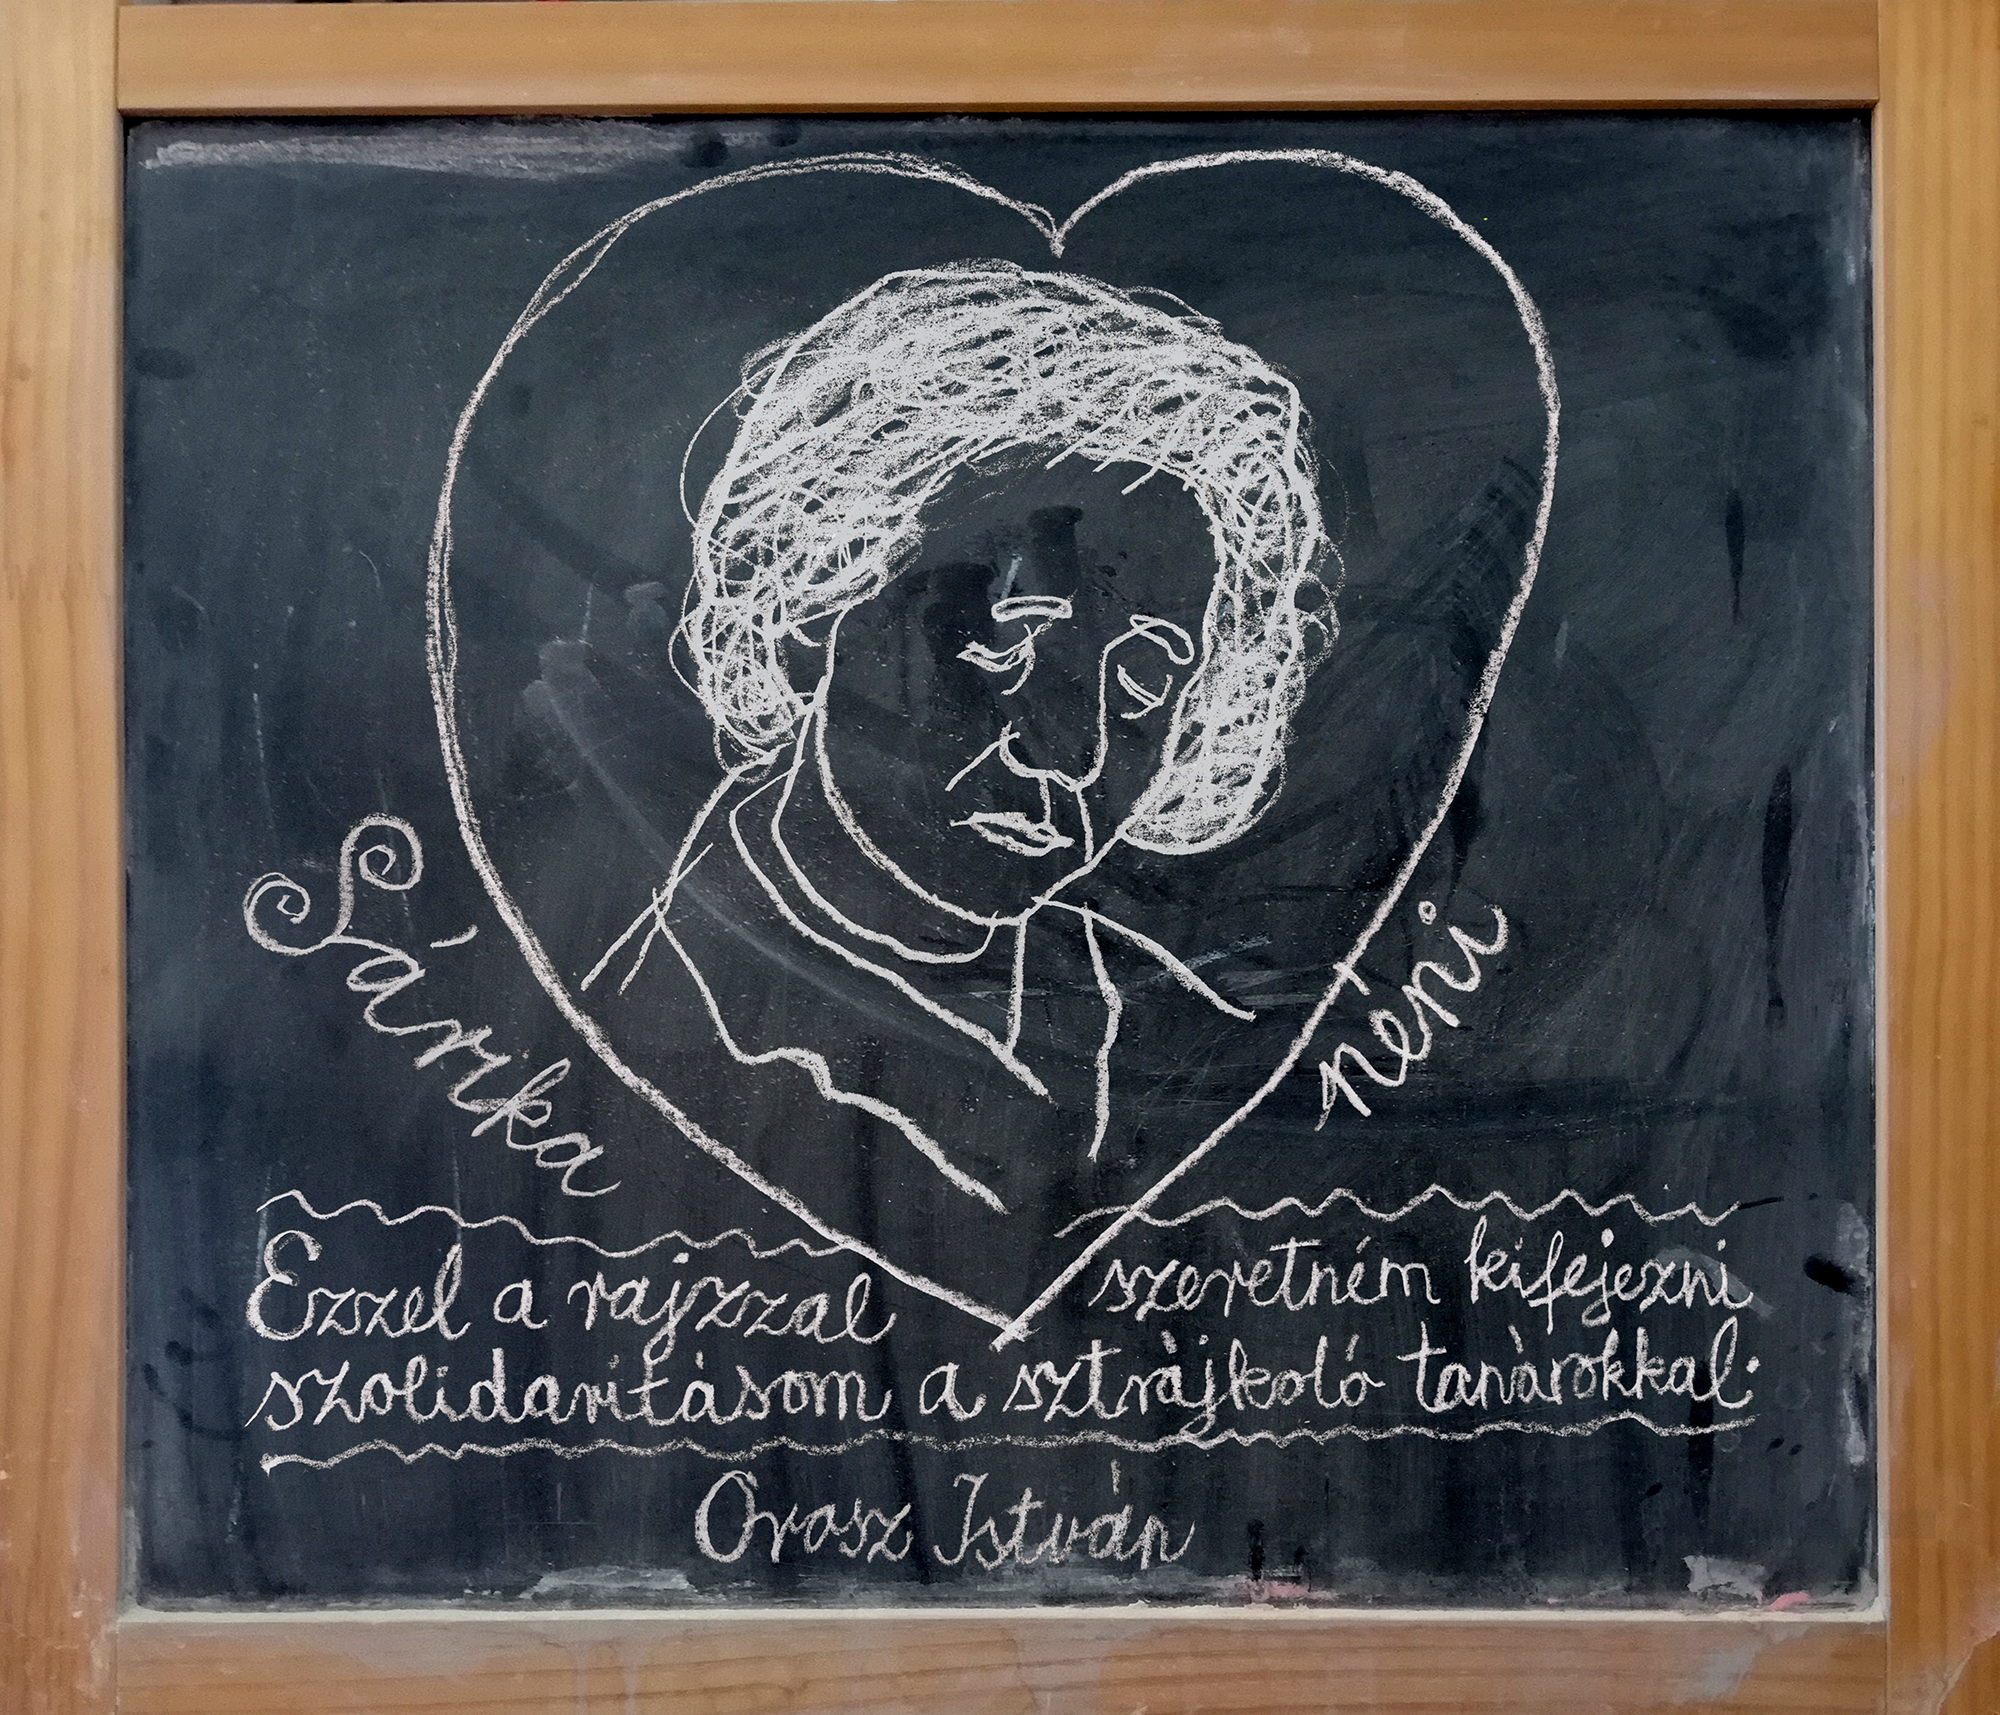 Sárika néni
Ezzel a rajzzal szeretném kifejezni
szolidaritásom a sztrájkoló tanárokkal.
Orosz István